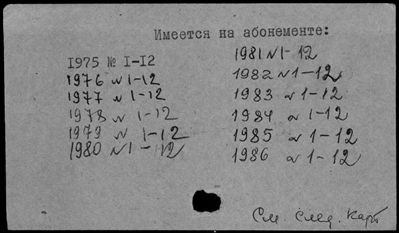 Имеется на абонементе:
1975 № I-I2
1976 № 1-12
1977 № 1-12
1978 № 1-12
1979 № 1-12
1980 № 1-12
1981 № 1-12
1982 № 1-12
1983 № 1-12
1984 № 1-12
1985 № 1-12
1986 № 1-12
См. след. карт